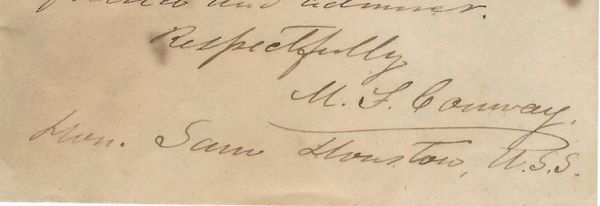 and admirer.
Respectfully
M. F. Conway.
Hon. Sam Houston, U.S.S.